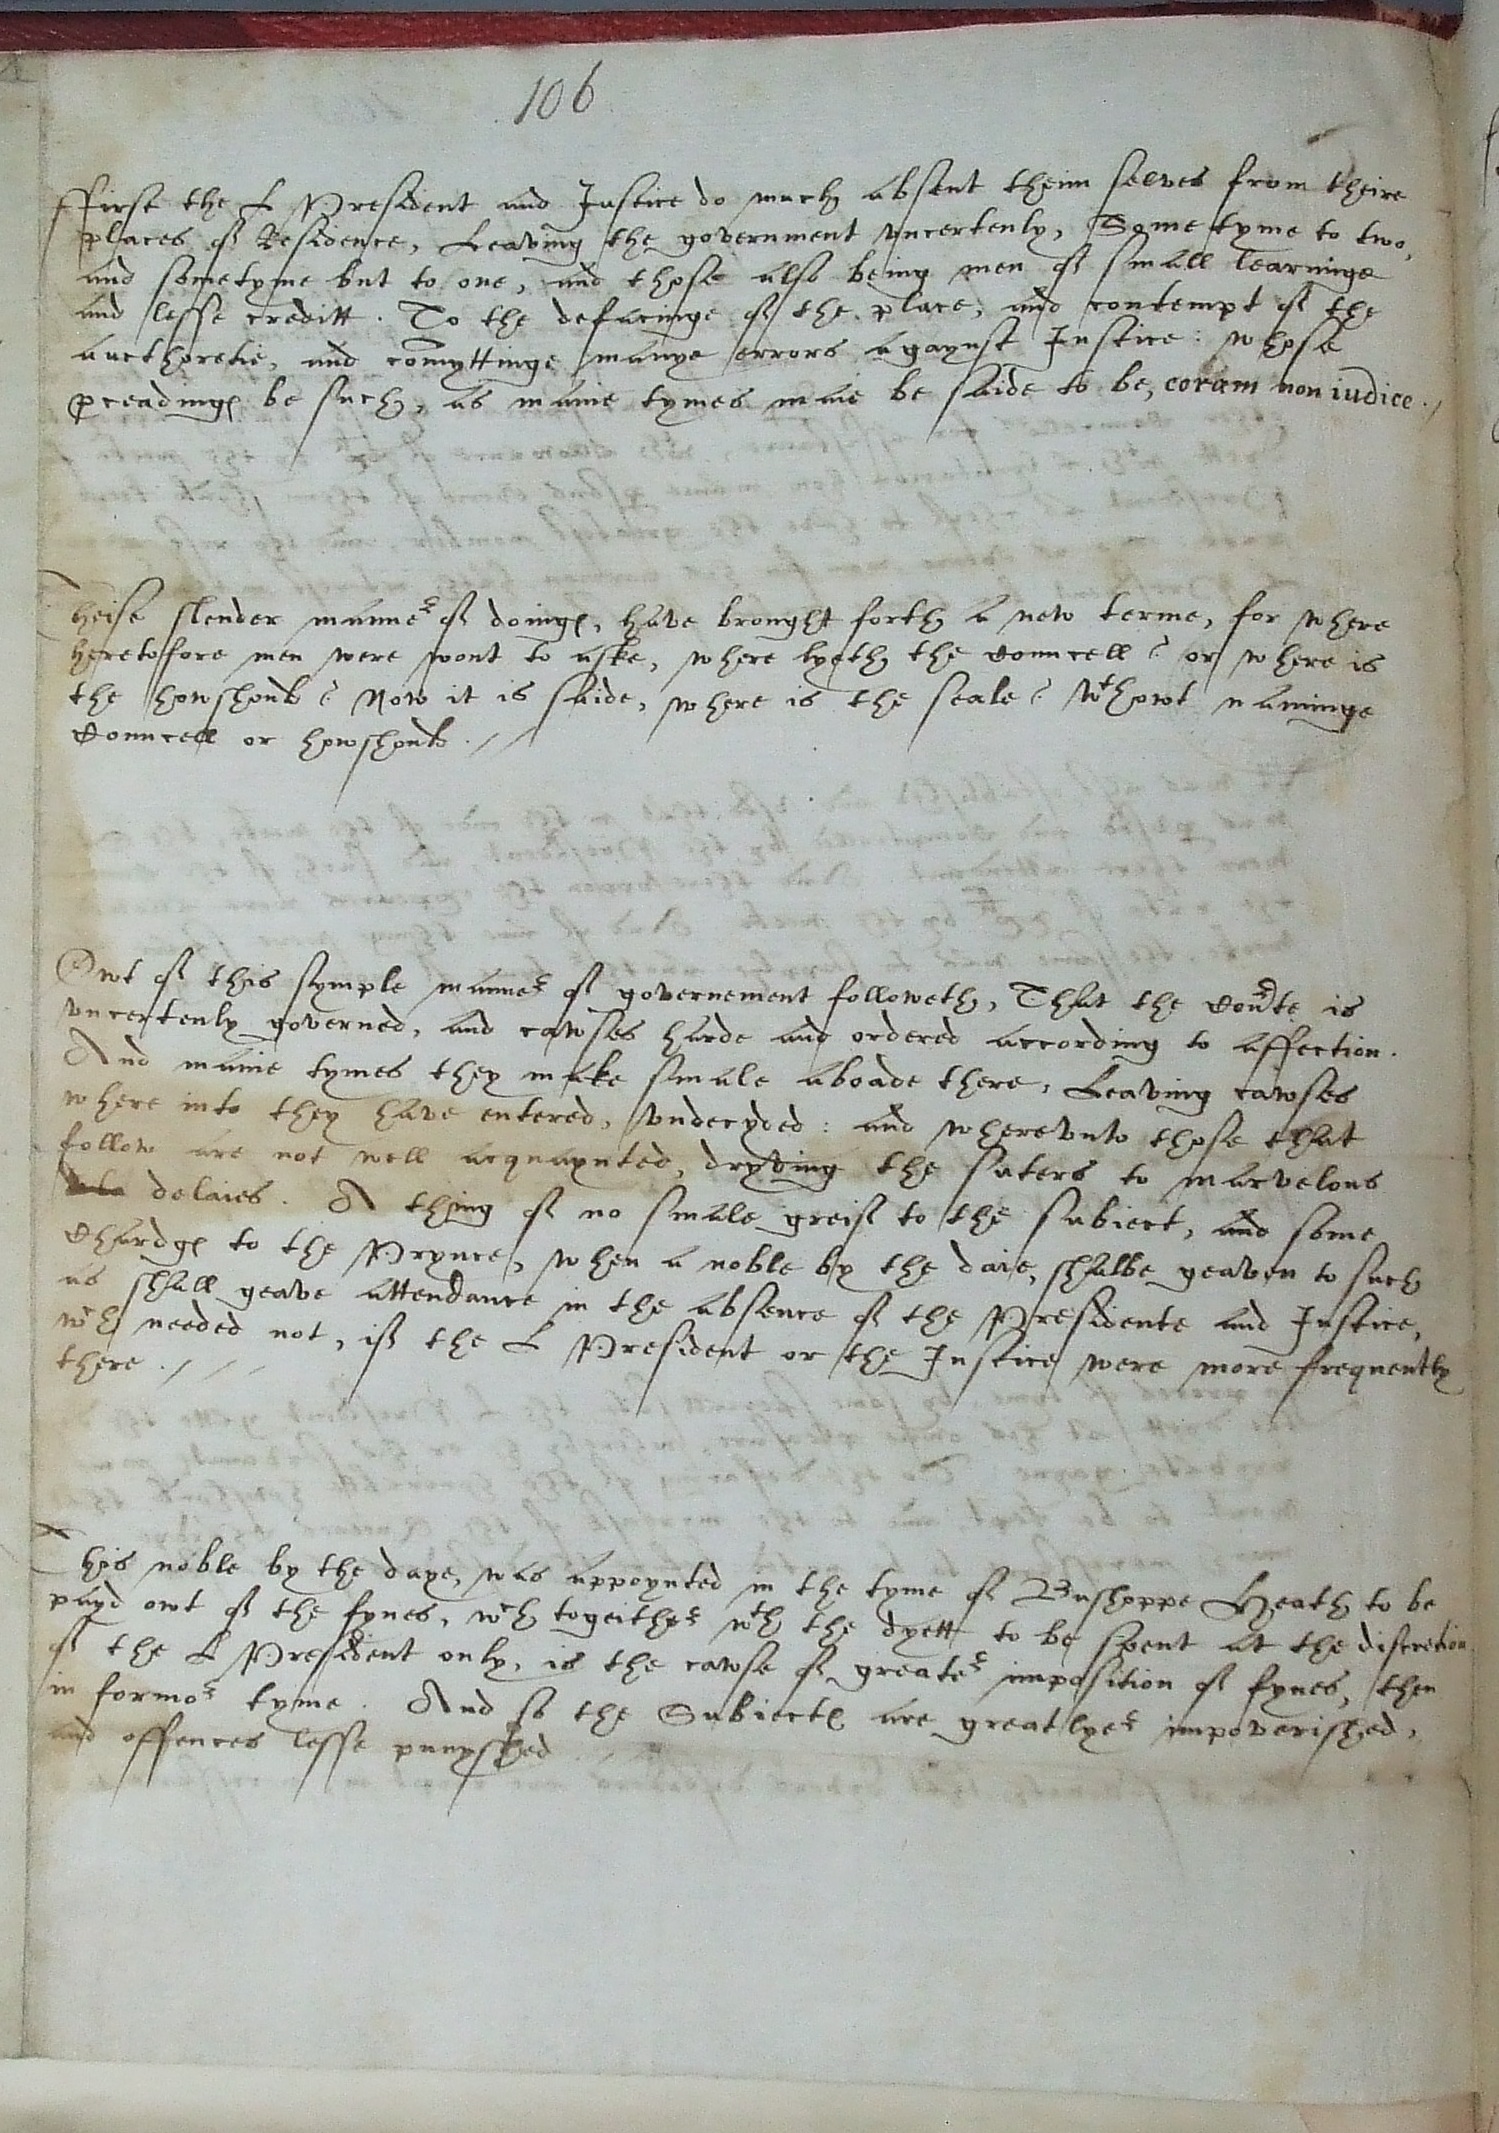 106
ffirst the L President and Justice do much absent theim selves from theire
places of Residence, Leaving the government vncertenly, Some tyme to two,
and sometyme but to one, and those also being men of small learninge
and lesse creditt. To the defacinge of the place, and contempt of the
aucthoretie, and comyttinge manye errors agaynst Justice: whose
pceadings be such, as manie tymes maie be saide to be, coram non iudice./
Theise slender manner of doings, have brought forth a new terme, for where
heretofore men were wont to aske, where lyeth the Councell? or where is
the howshould? Now it is saide, where is the seale? wthowt naminge
Councell or howshould.//
Owt of this symple manner of governement followeth, That the Courte is
vncertenly governed, and cawses harde and ordered according to affection.
And manie tymes they make smale aboade there, Leaving cawses
where into they have entered, vndecyded: and wherevnto those that
follow are not well acquaynted, dryving the suters to marvelous
delaies. A thing of no smale greif to the subiect, and some
Chardgs to the Prynce, when a noble by the daie, shalbe geaven to such
as shall geave attendance in the absence of the Presidente and Justice,
wch needed not, if the L President or the Justice were more frequently
there.///
This noble by the daye, was appoynted in the tyme of Busshoppe Heath to be
payd owt of the fynes, wch togeither wth the dyett to be spent at the discretion
of the L President only, is the cawse of greater imposition of fynes, then
in former tyme. And so the Subiects are greatlyer impoverished,
and offences lesse punyshed